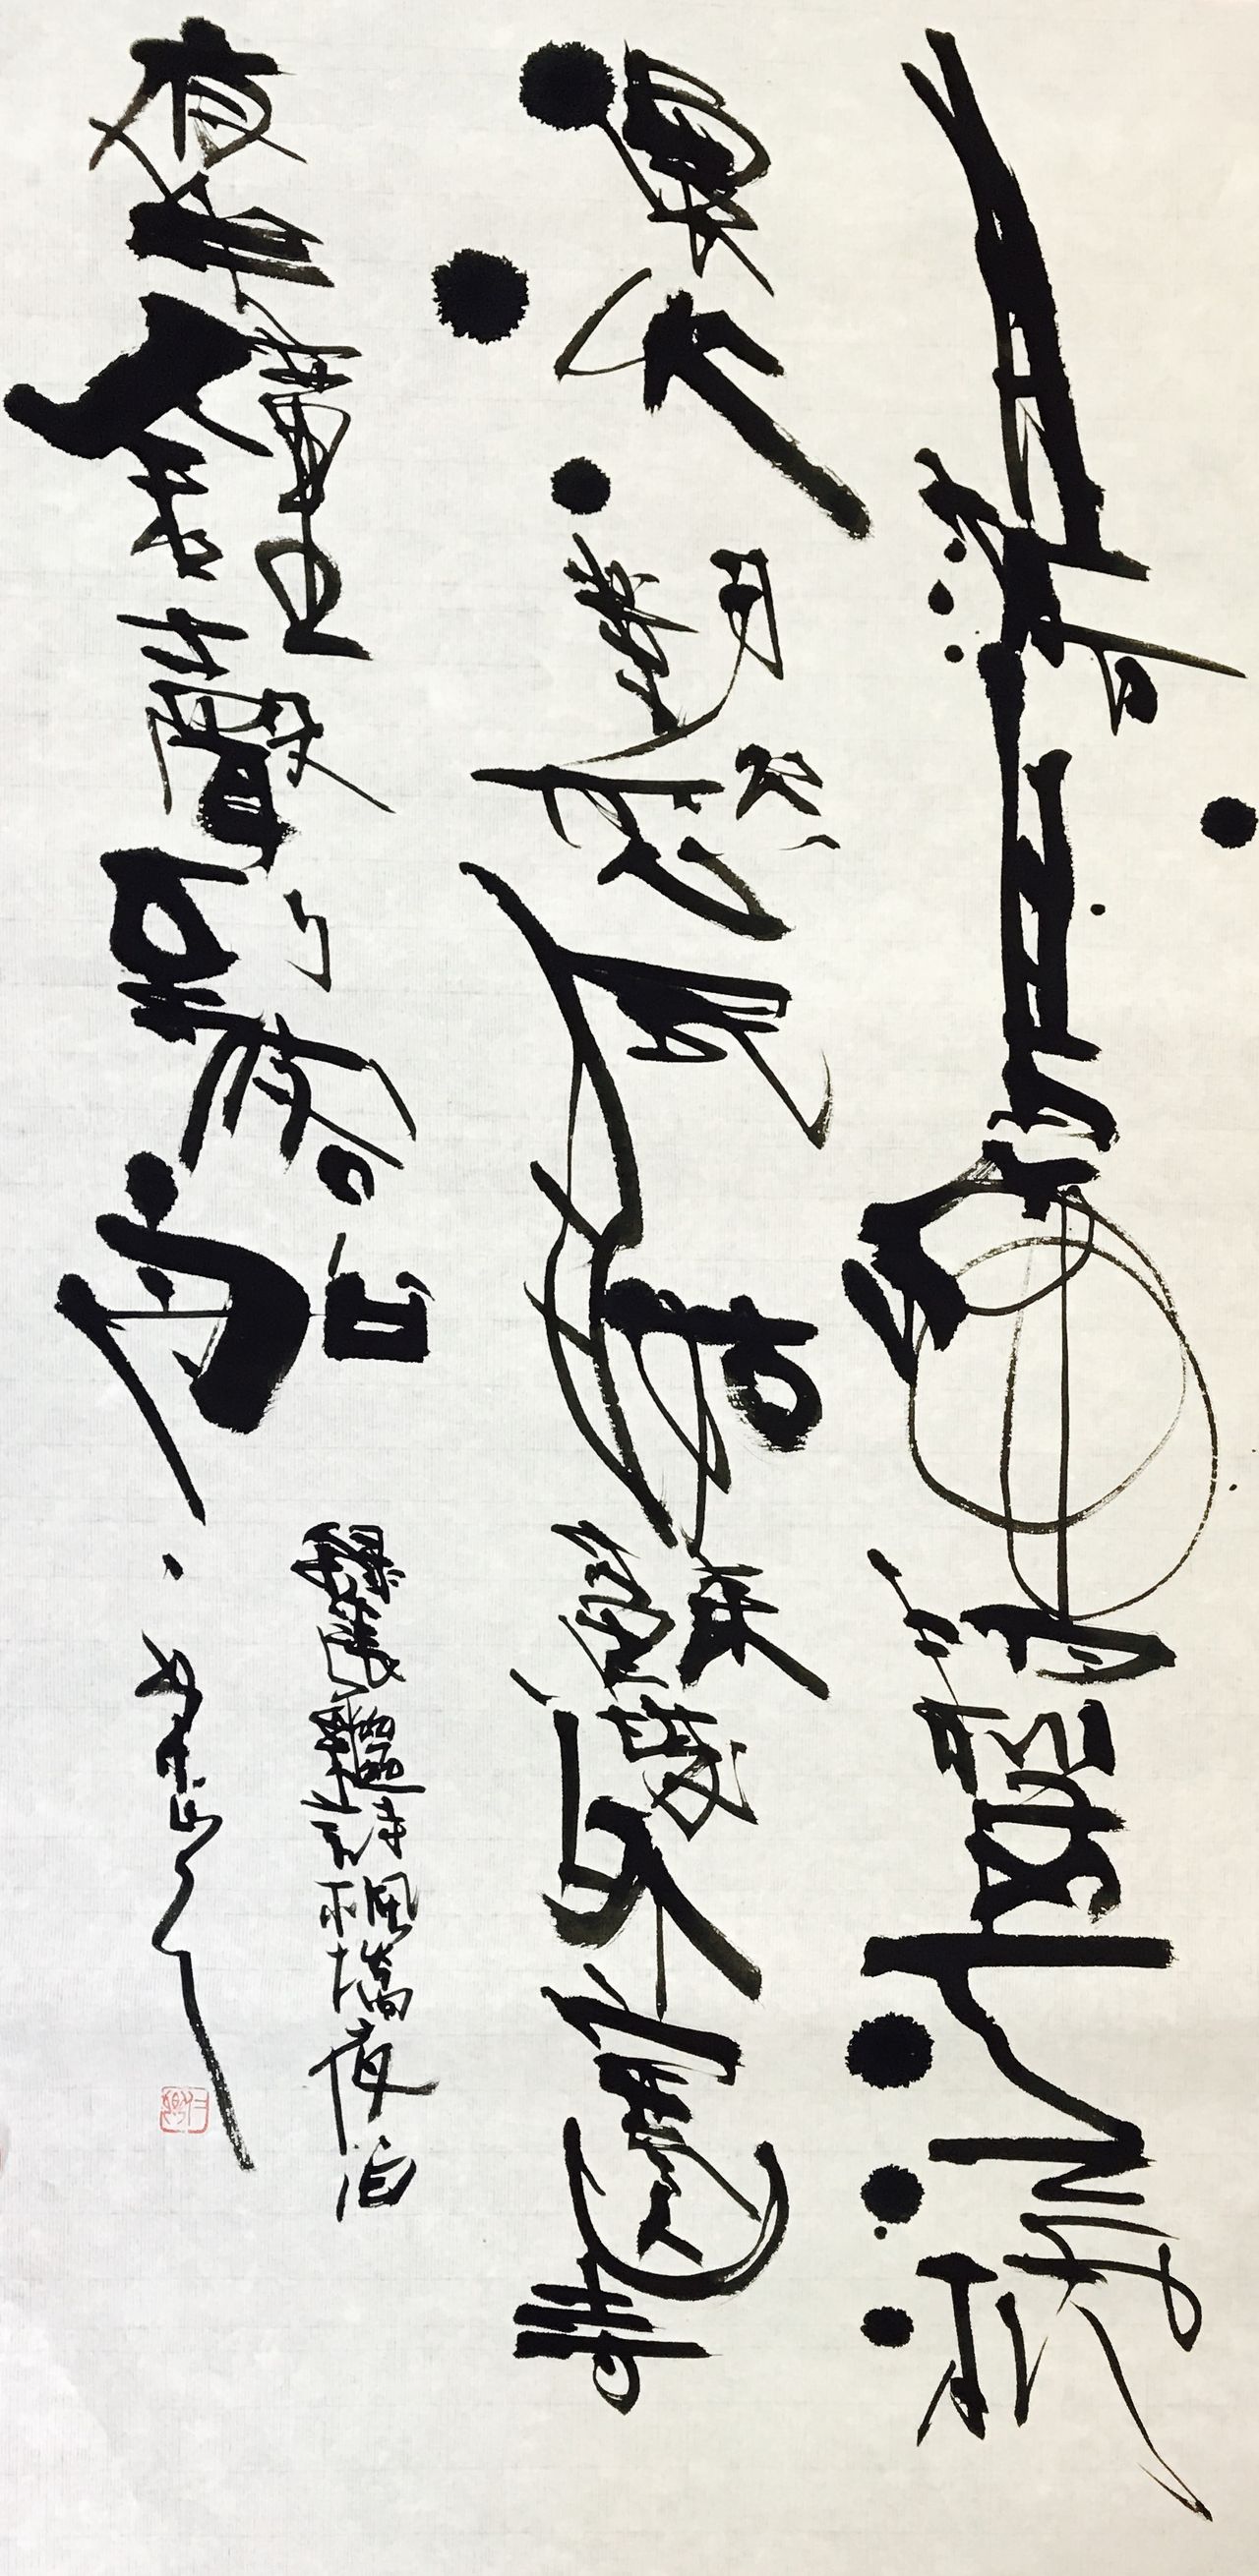 月落烏啼霜滿天江楓
漁火對愁眠姑蘇城外寒山寺
夜半鐘聲到客船
録張繼詩楓橋夜泊